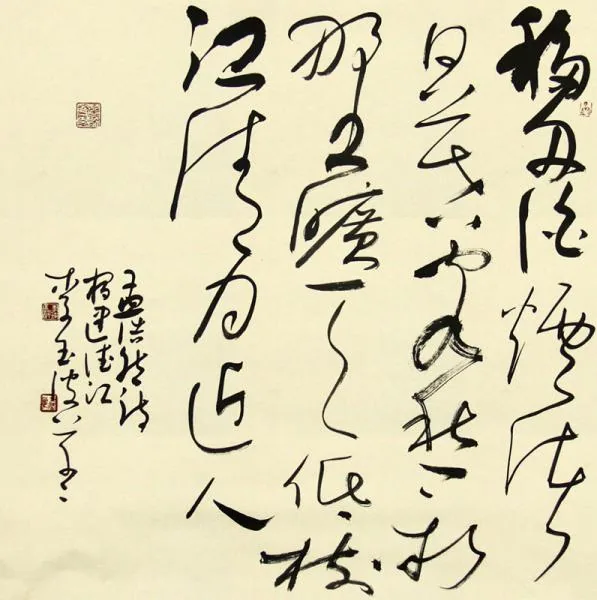 移舟泊煙渚
日暮客愁新
野曠天低樹
江清月近人
孟浩然詩
宿建德江
李玉波